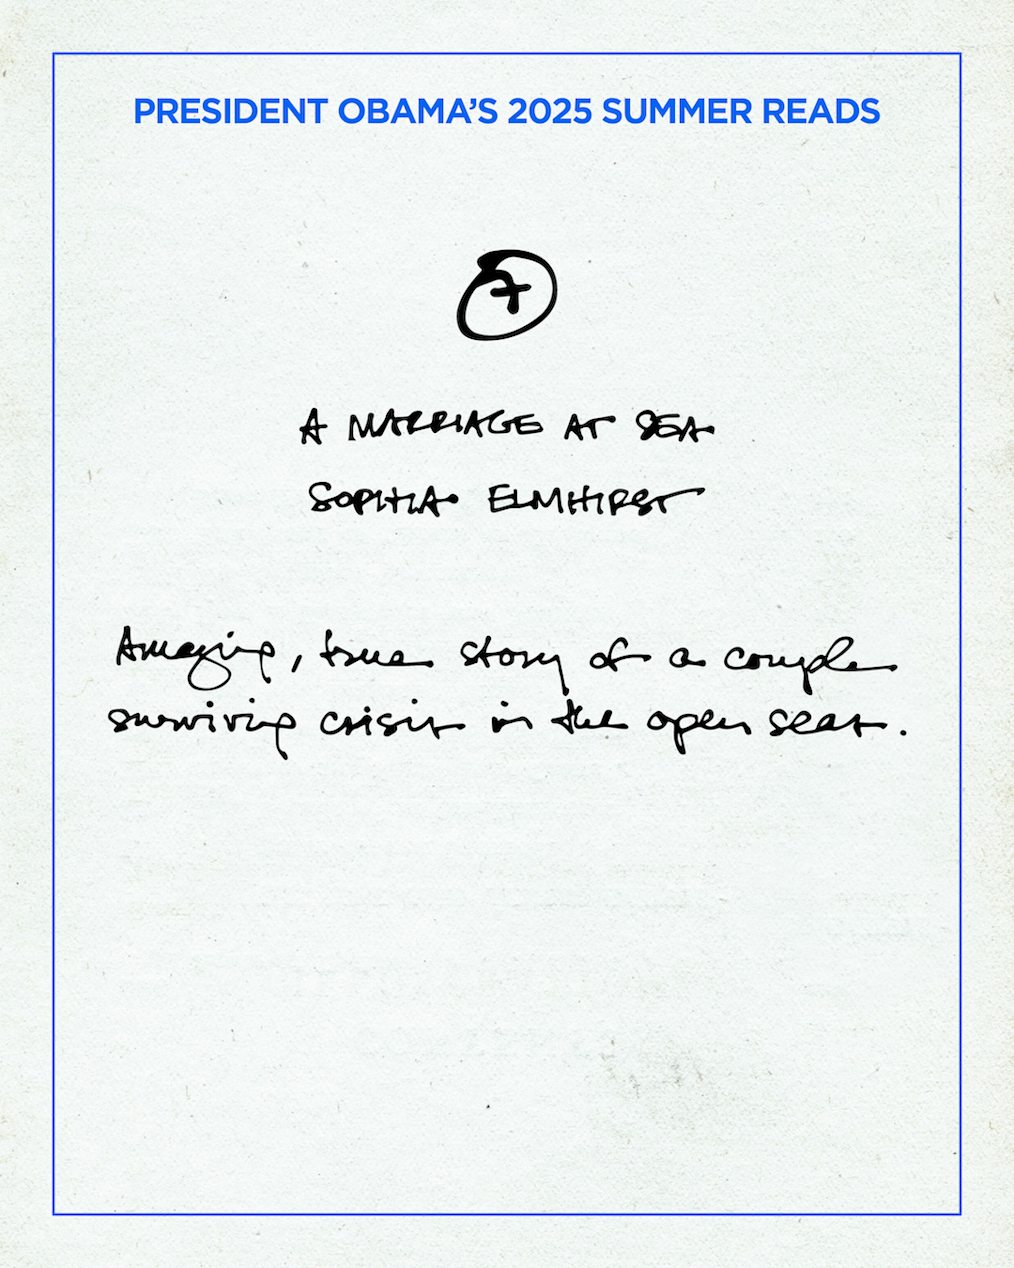 PRESIDENT OBAMA’S 2025 SUMMER READS
7
A MARRIAGE AT SEA
SOPHIA ELMHIRST
Amazing, true story of a couple
surviving crisis in the open seas.